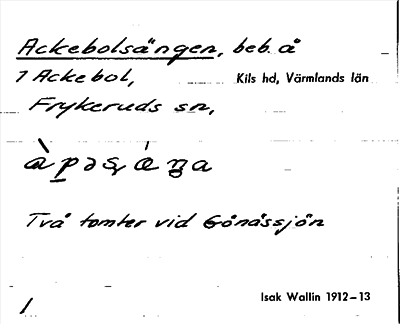 Ackebolsängen, beb. å
1 Ackebol, Kils hd, Värmlands län
Frykeruds sn,
Två tomter vid Gönässjön
Isak Wallin 1912-13
1